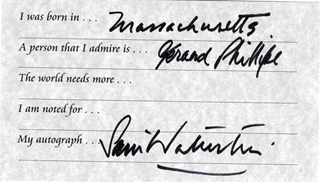 I was born in . . . Massachusetts
A person that I admire is . . . Gérard Phillipe
The world needs more . . .
I am noted for . . .
My autograph . . . Sam Waterston